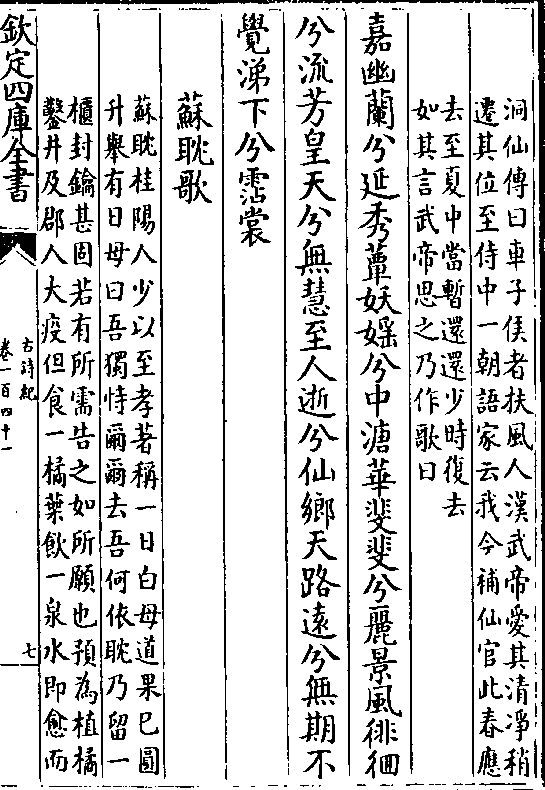 洞仙傳曰車子侯者扶風人漢武帝愛其清淨稍
遷其位至侍中一朝語家云我今補仙官此春應
去至夏中當暫還還少時復去
如其言武帝思之乃作歌曰
嘉幽蘭兮延秀蕈妖婬兮中溏華斐斐兮麗景風徘徊
兮流芳皇天兮無慧至人逝兮仙鄉天路遠兮無期不
覺涕下兮霑裳
蘇耽歌
蘇耽桂陽人少以至孝著稱一日白母道果已圓
升舉有日母曰吾獨恃爾爾去吾何依耽乃留一
櫃封鑰甚固若有所需告之如所願也預為植橘
鑿井及郡人大疫但食一橘葉飲一泉水即愈而
欽定四庫全書
古詩紀
卷一百四十一
七